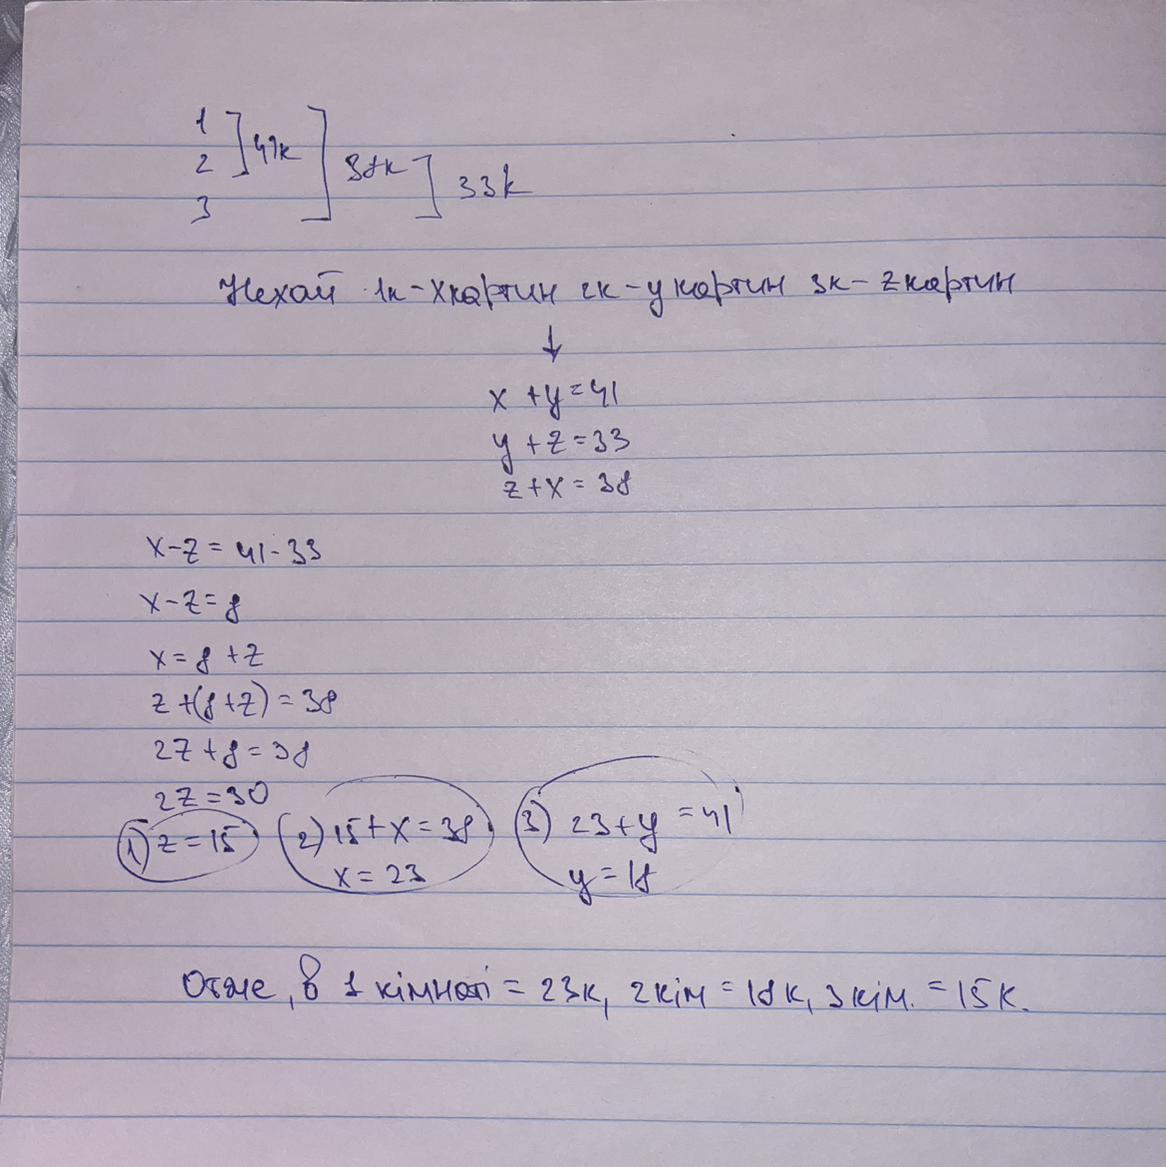 1
2 ] 41к ] 38к ] 33к
3
Нехай 1к - х картин 2к - у картин 3к - z картин
↓
x + y = 41
y + z = 33
z + x = 38
x - z = 41 - 33
x - z = 8
x = 8 + z
z + (8 + z) = 38
2z + 8 = 38
2z = 30
1) z = 15 2) 15 + x = 38 3) 23 + y = 41
x = 23 y = 18
Отже, в 1 кімнаті = 23к, 2 кім = 18к, 3 кім. = 15к.